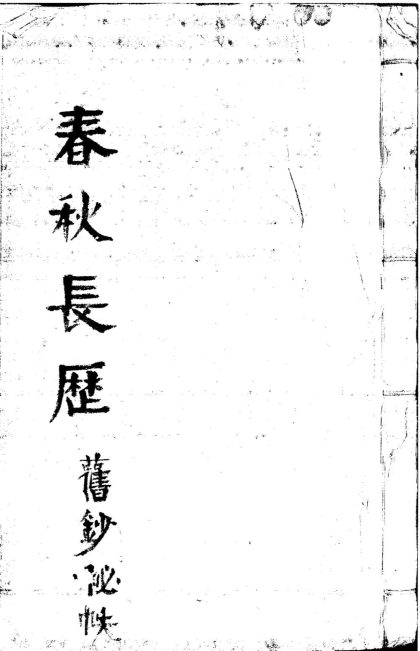 春秋長歷
舊鈔祕帙